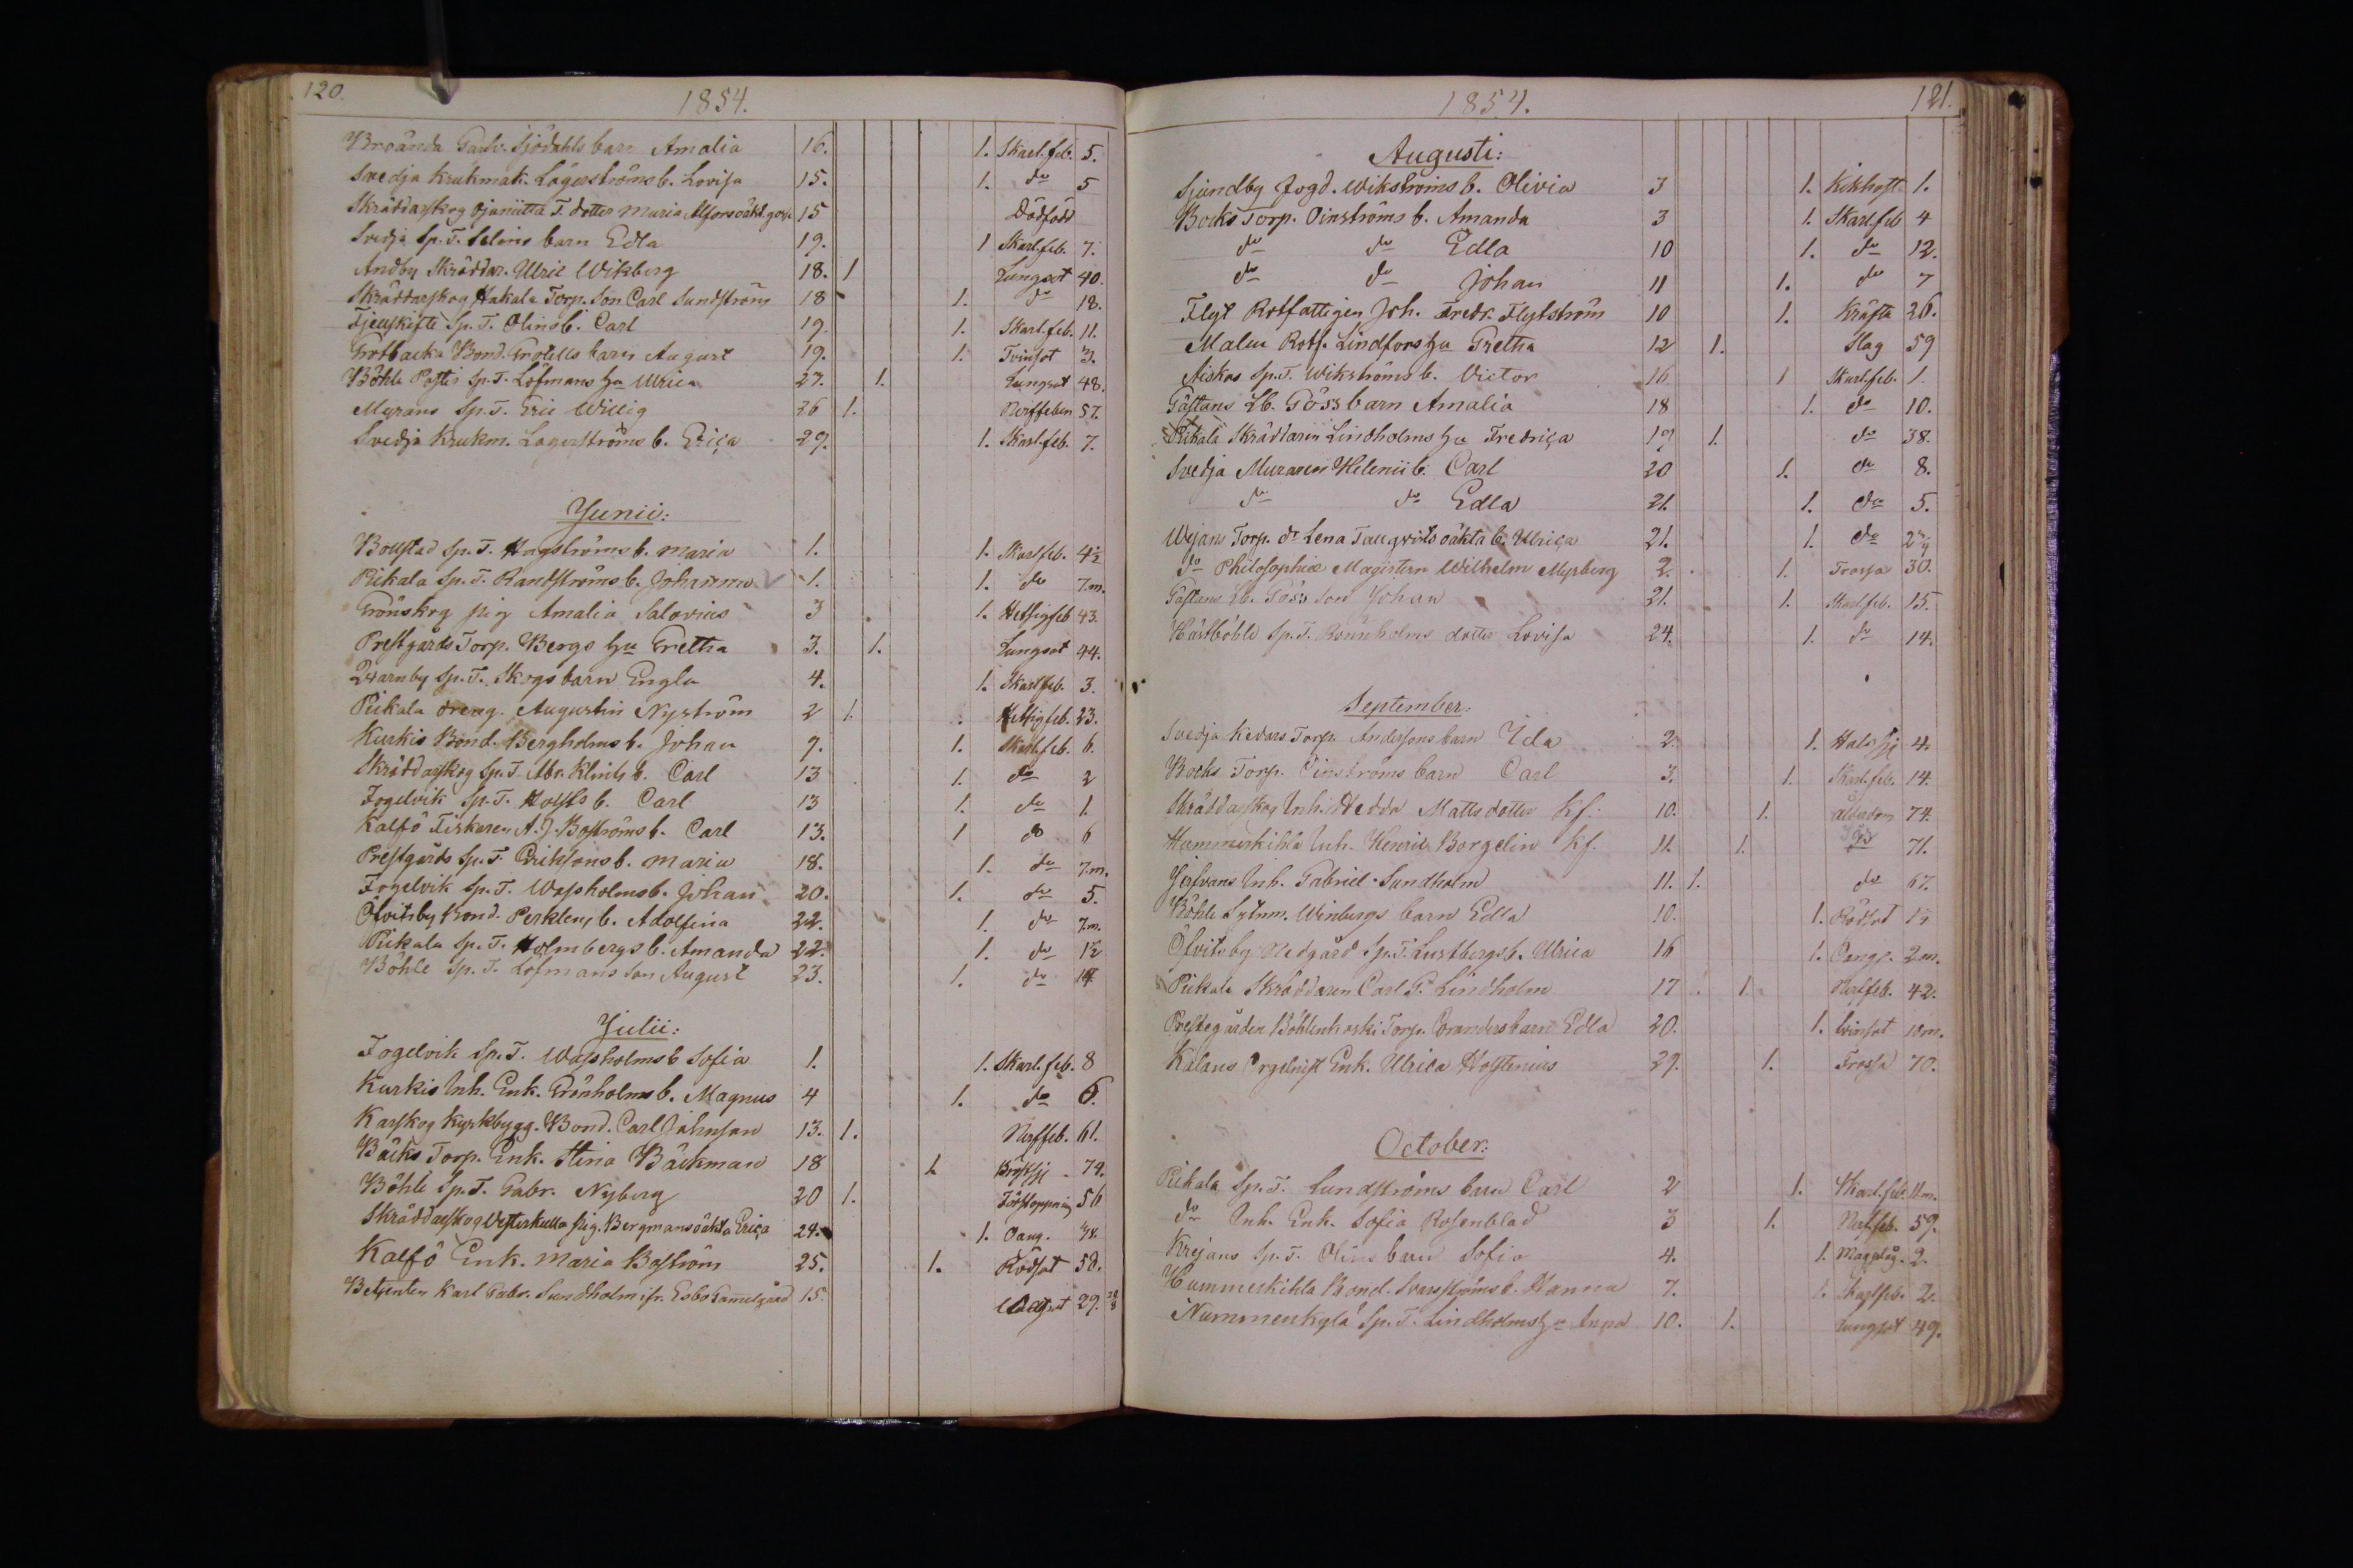 120.
1854.
Broända Garfv. Sjödahls barn Amalia 16. 1. Skarl.feb. 5.
Svedja Krukmak. Lågerströms b. Lovisa 15. 1. do 5
Skräddarskog Ojaniitta T. dotter Maria Alfors oäkt. 15 Dödfödt
Svedja Sp. T. Selins barn Edla 19. 1 Skarl.feb. 7.
Andby Skräddar. Ulric Wikberg 18. 1 Lungsot 40.
Skräddarskog Hakala Torp. Son Carl Sundström 18 1. do 18.
Tjenskifte Sp. T. Olins b. Carl 19. 1. Skarl.feb. 11.
Grotbacka Bond. Grotells barn August 19. 1. Tvinsot 3.
Böhle Sp. T. Löfmans Hu Ulrica 27. 1. Lungsot 48.
Myrans Sp. T. Eric Willig 26 1. Nerffeben 57.
Svedja Krukm. Lagerströms b. Erica 29. 1. Skarl.feb. 7.
Junii:
Bollstad Sp. T. Hagströms b. Maria 1. 1. Skarl.feb. 4½
Pickala Sp. T. Randströms b. Johanna 1. 1. do 7.m.
Grönskog pig Amalia Salovius 3 1. Hetsigfeb 43.
Prestgårds Torp. Bergs Hu Gretha 3. 1. Lungsot 44.
Qvarnby Sp. T. Skogs barn Engla 4. 1. Skarlfeb. 3.
Pickala dreng. Augustin Nyström 2 1. Hettigfeb. 23.
Kurkis Bond. Bergholms b. Johan 9. 1. Skarl.feb. 6.
Skräddarskog Sp. T. Abr. Klints b. Carl 13 1. do 2
Fogelvik Sp. T. Holsts b. Carl 13 1. do 1.
Kalfö Fiskaren A. J. Boströms b. Carl 13. 1 do 6
Prestgårds Sp. T. Eriksons b. Maria 18. 1. do 7.m.
Fogelvik Sp. T. Wassholms b. Johan 20. 1. do 5.
Ölvitsby Bond. Perklens b. Adolfina 22. 1. do 7.m.
Pickala Sp. T. Holmbergs b. Amanda 22. 1. do 1½
Böhle Sp. T. Löfmans Son August 23. 1. do 14
Julii:
Fogelvik Sp. T. Wassholms b Sofia 1. 1. Skarl.feb. 8
Kurkis Inh. Enk. Grönholms b. Magnus 4 1. do 6.
Karskog Kyrkbygg. Bond. Carl Johnson 13. 1. Nerffeb. 61.
Bäcks Torp. Enk. Stina Bäckman 18 1. Bröstsj 74.
Böhle Sp. T. Gabr. Nyberg 20 1. Förstoppning 56
Skräddarskog Westerkulla pig. Bergmans oäkta Erica 24. 1. Oang.
Kalfö Enk. Maria Boström 25. 1. Rödsot 58.
Betjenten Karl Gabr. Sundholm ifr. Esbo Gammelgård 15. 29.
1854.
121.
Augusti:
Sjundby Fogd. Wikströms b. Olivia 3 1. Kikhosta 1.
Bocks Torp. Oinströms b. Amanda 3 1. Skarl.feb 4
do do Edla 10 1. do 12.
do do Johan 11 1. do 7
Flyt Rotfattigen Joh. Fredr. Flytström 10 1. Kräfta 26.
Malm Rotf. Lindfors Hu Gretha 12 1. Slag 59
Aiskos Sp. T. Wikströms b. Victor 16 1 Skarl.feb. 1.
Gästans Lb. Göss barn Amalia 18 1. do 10.
Pikala Skräddaren Lindholms Hu Fredrica 19 1. do 38.
Svedja Muraren Helenii b. Carl 20 1. do 8.
do do Edla 21. 1. do 5.
Wejans Torp. dr Lena Tanqvists oäkta b. Ulrica 21. 1. do
do Philosophiæ Magistern Wilhelm Myrberg 2. 1. Frossa 30.
Gästans Lb. Göss Son Johan 21. 1. Skarl.feb. 15.
Hästböhle Sp. T. Rönnholms dotter Lovisa 24. 1. do 14.
September:
Svedja Kedars Torp. Andersons barn Ida 2. 1. Halssj 4.
Bocks Torp. Oinströms barn Carl 3. 1. Skarl.feb. 14.
Skräddarskog Inh. Hedda Matts dotter Kf. 10. 1. ålderdom 74.
Hummerkihla Inh. Henric Borgelin Kf. 11. 1. do 71.
Inh. Gabriel Sundholm 11. 1. do 67.
Böhle Sytnm. Winbergs barn Edla 10. 1. Rödsot 1½
Ölvitsby Nedgård Sp. T. Lustbergs b. Ulrica 16 1. Oang. 2m.
Pickala Skräddaren Carl G. Lindholm 17 1. Nerffeb. 42.
Prestegården Böhlenkoski Torp. Branders barn Edla 20. 1. tvinsot 10m.
Kalans Orgelnist Enk. Ulrica Holstenius 29. 1. Frossa 70.
October:
Pikala Sp. T. Lundströms barn Carl 2 1. Skarl.feb. 11m.
do Inh. Enk. Sofia Rosenblad 3 1. Nerf.feb. 59.
Krejans Sp. T. Olins barn Sofia 4. 1. Magplåg. 2.
Hummerkihla Bond. Svarsströms b. Hanna 7. 1. Skarlfeb. 2.
Nummenkylä Sp. T. Lindholms Hu Anna 10. 1. Lungsot 49.